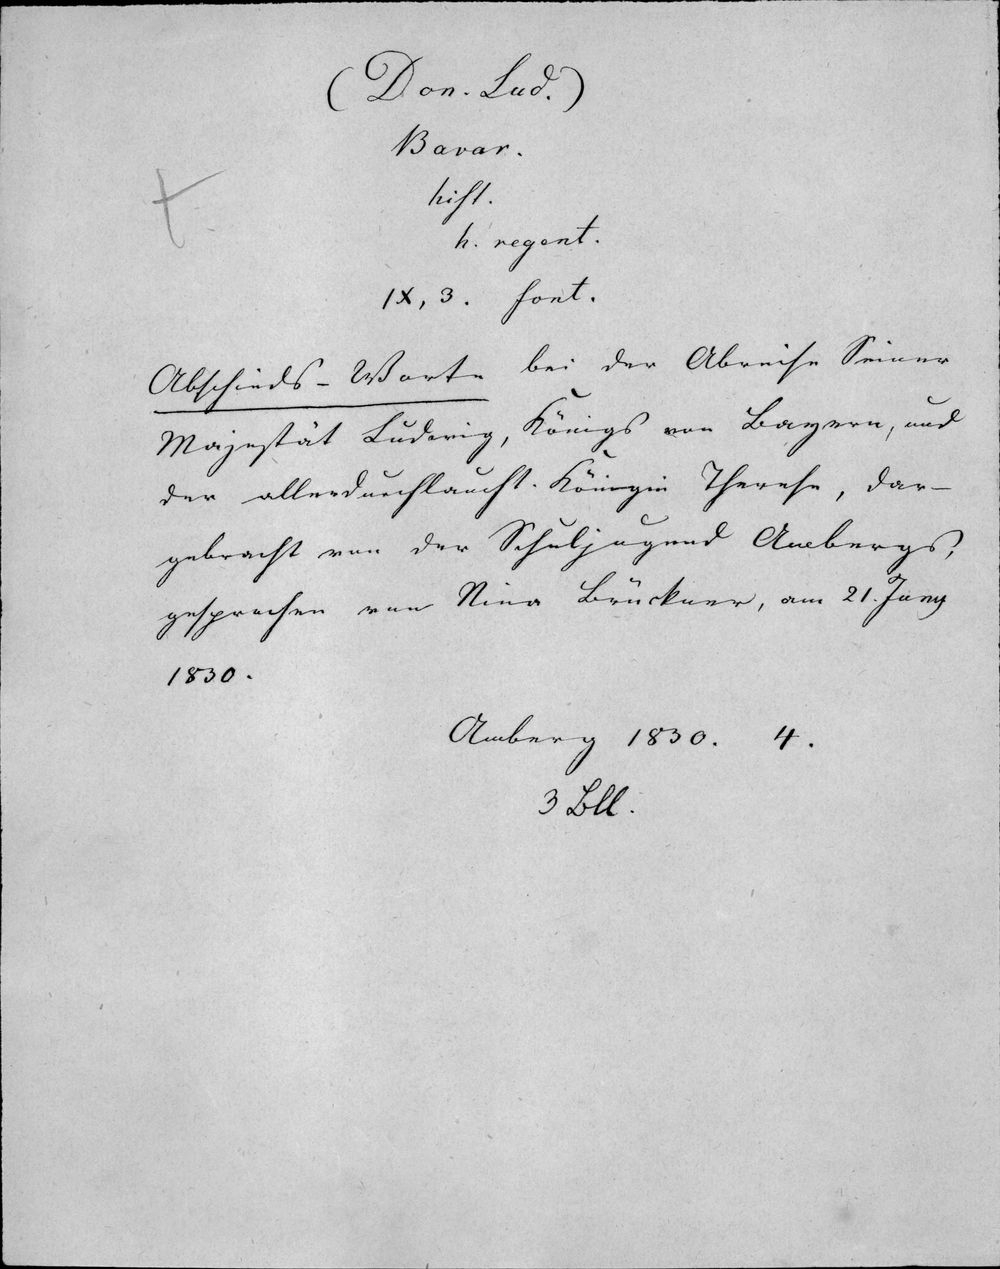 (Don. Lud.)
Bavar.
hist.
h. regent.
IX, 3. font.
Abschieds-Worte bei der Abreise Seiner
Majestät Ludwig, Königs von Bayern, und
der allerdurchlaucht. Königin Therese, dar-
gebracht von der Schuljugend Ambergs,
gesprochen von Nina Brückner, am 21. Juny
1830.
Amberg 1830. 4.
3 Bll.